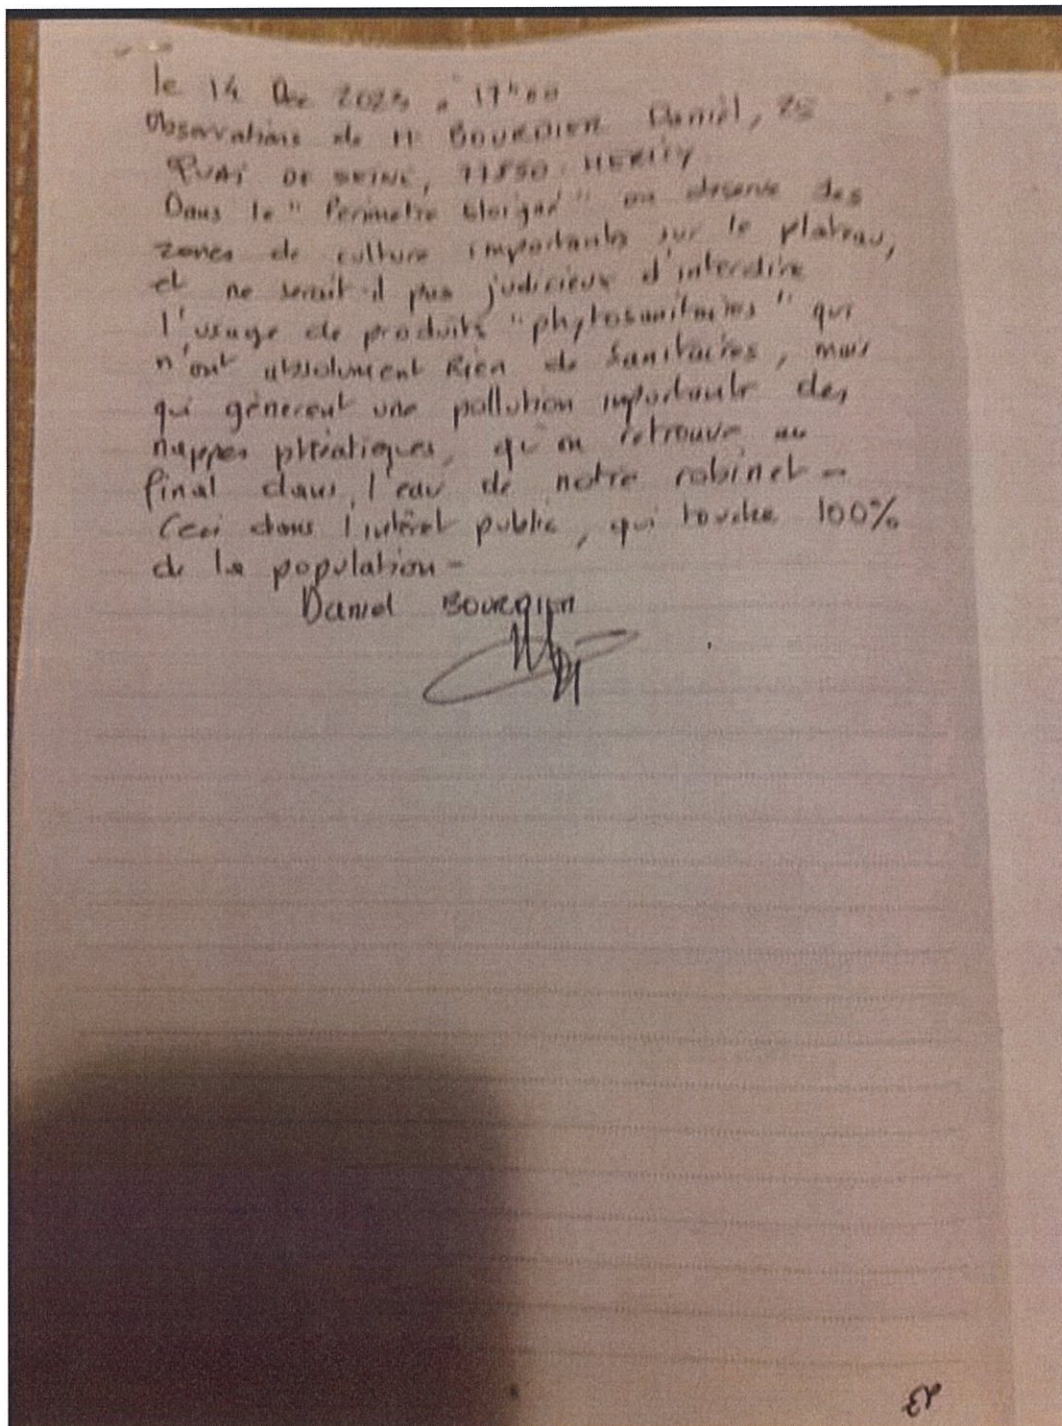 le 14 Dec 2023 à 17h00
Observations de Mr BOURDIER Daniel, 25
QUAI DE SEINE, 77850 HERICY
Dans le "Perimetre Eloigné" on observe des
zones de culture importantes sur le plateau,
et ne serait-il pas judicieux d'interdire
l'usage de produits "phytosanitaires" qui
n'ont absolument Rien de Sanitaires, mais
qui génèrent une pollution importante des
nappes phréatiques, qu'on retrouve au
final dans l'eau de notre robinet -
Ceci dans l'intérêt public, qui touche 100%
de la population -
Daniel BOURDIER